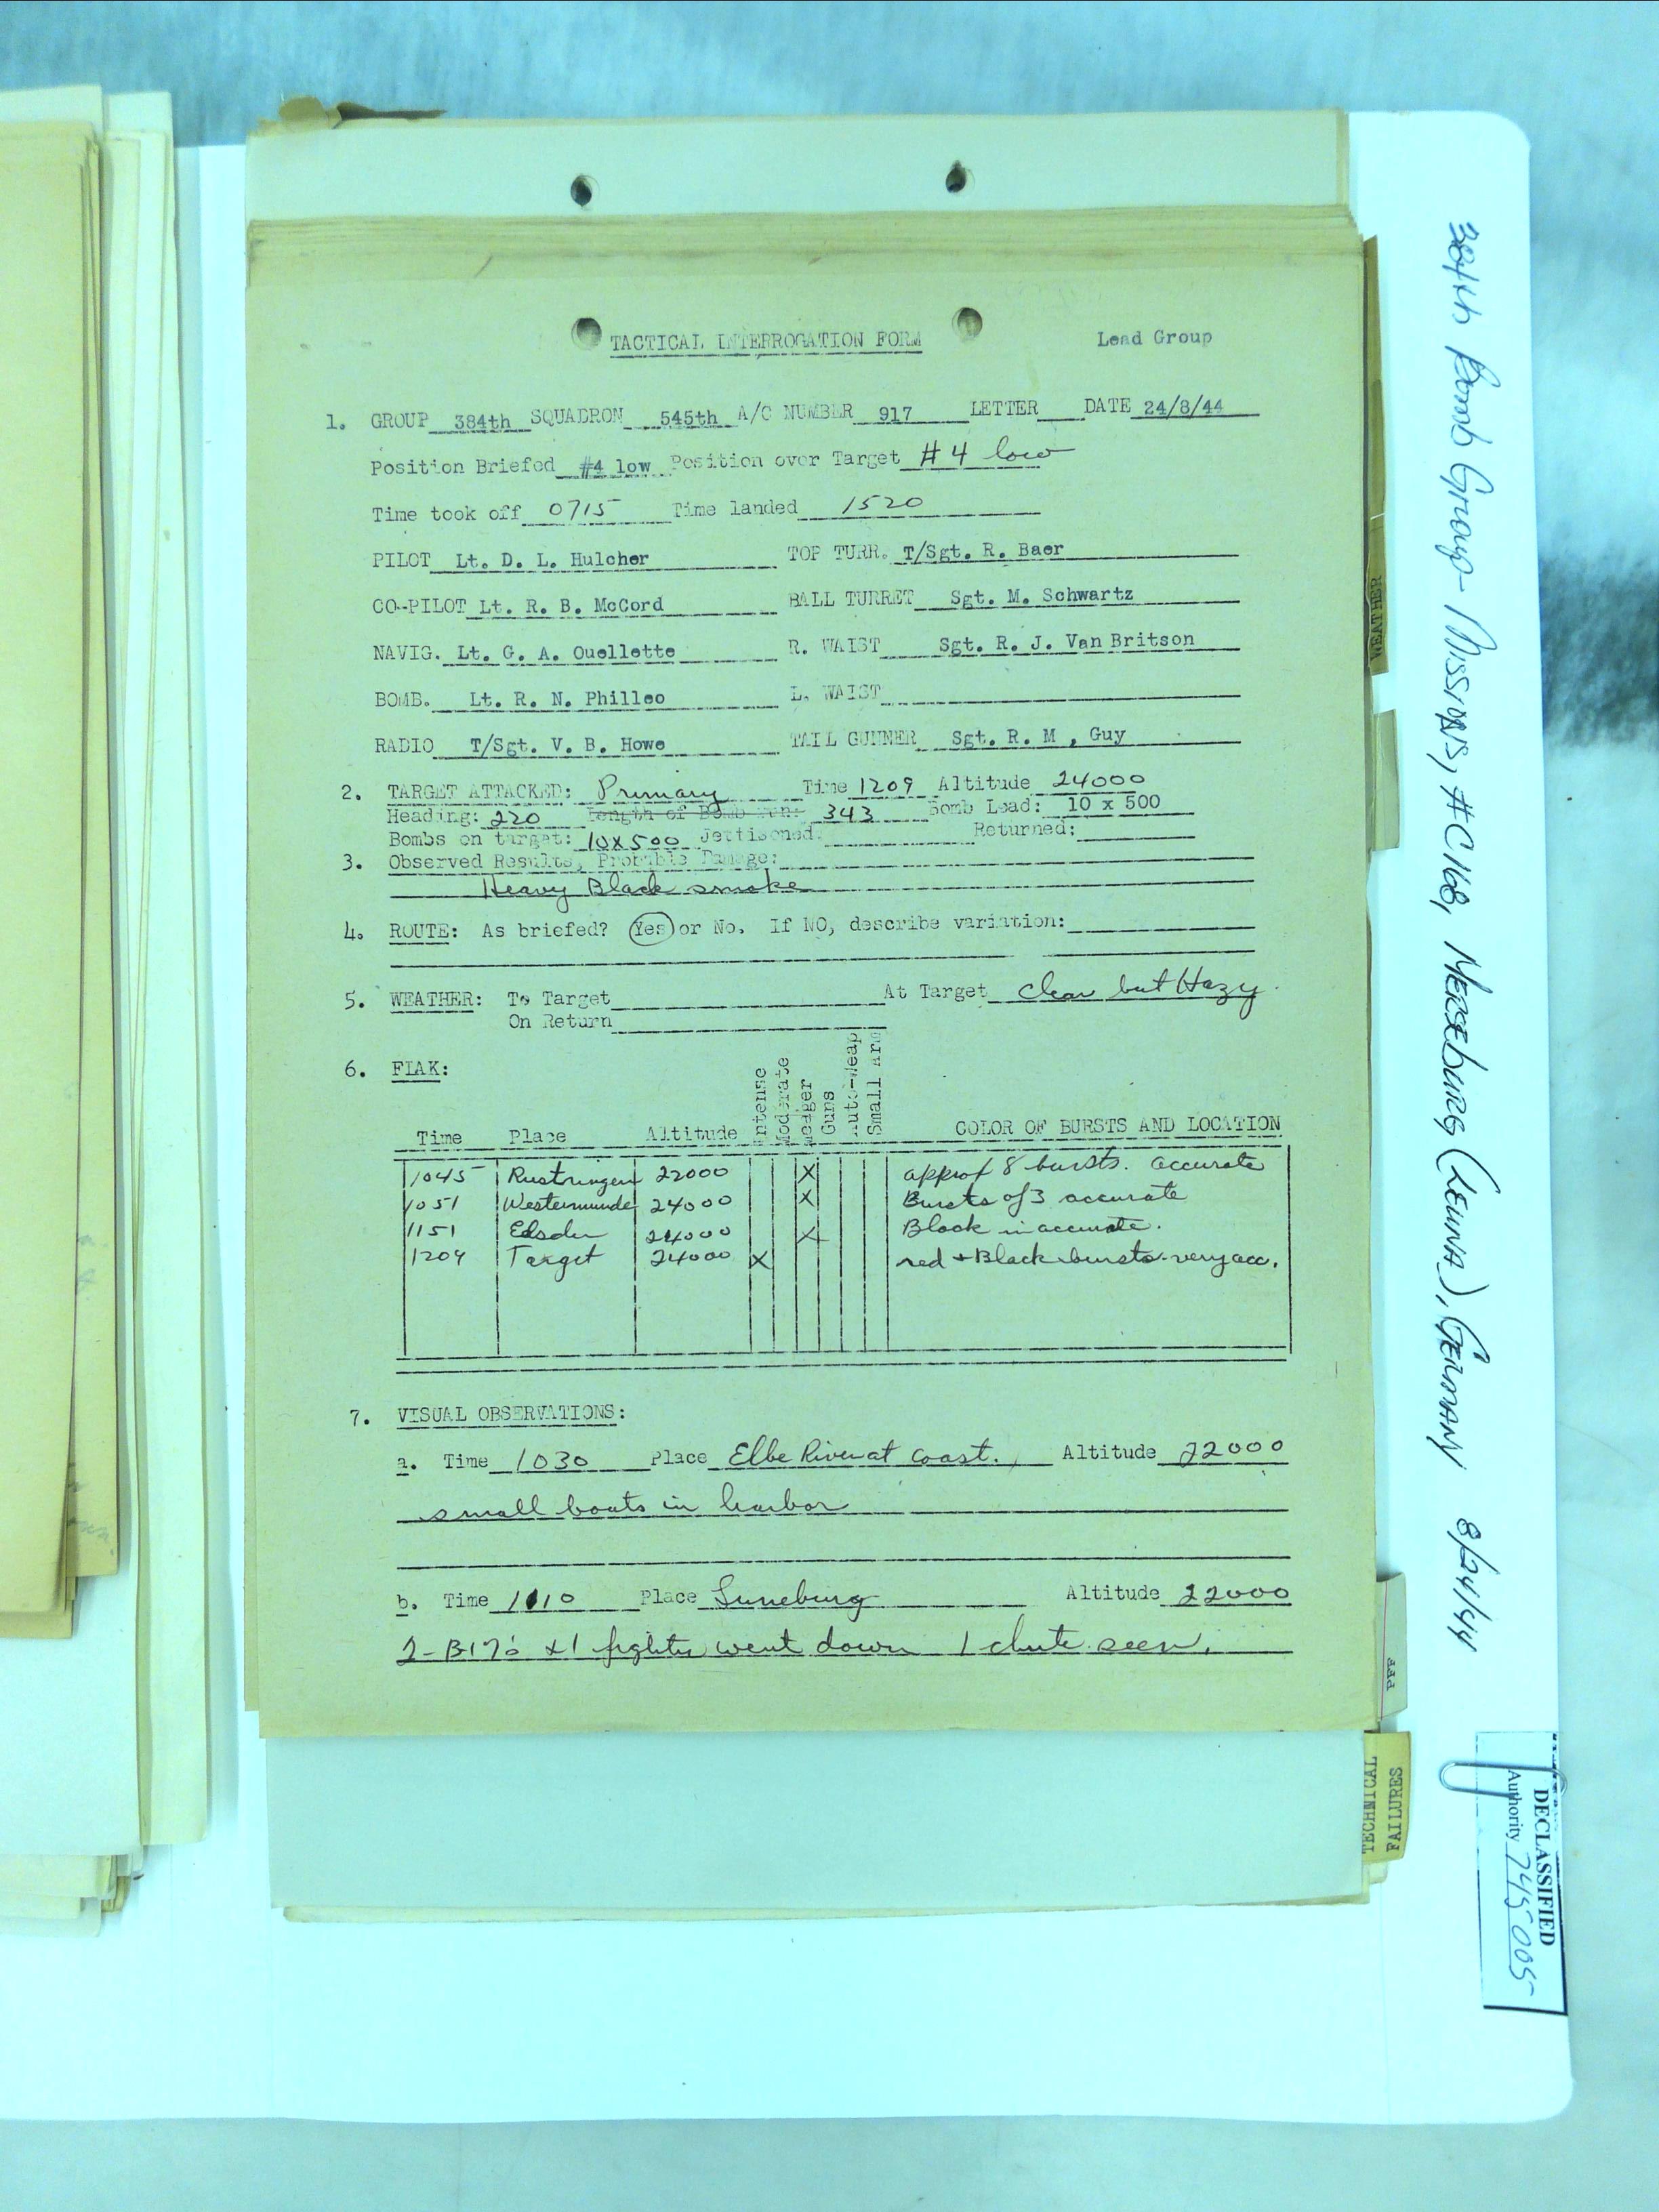 TACTICAL INTERROGATION FORM Lead Group
1. GROUP 384th SQUADRON 545th A/C NUMBER 917 LETTER DATE 24/8/44
Position Briefed #4 low Position over Target #4 low
Time took off 0715 Time landed 1520
PILOT Lt. D. L. Hulcher TOP TURR. T/Sgt. R. Baer
CO-PILOT Lt. R. B. McCord BALL TURRET Sgt. M. Schwartz
NAVIG. Lt. G. A. Ouellette R. WAIST Sgt. R. J. Van Britson
BOMB. Lt. R. N. Philleo L. WAIST
RADIO T/Sgt. V. B. Howe TAIL GUNNER Sgt. R. M , Guy
2. TARGET ATTACKED: Primary Time 1209 Altitude 24000
Heading: 220 Length of Bomb Run: 343 Bomb Load: 10 x 500
Bombs on target: 10x500 Jettisoned: Returned:
3. Observed Results, Probable Damage:
Heavy Black smoke
4. ROUTE: As briefed? Yes or No. If NO, describe variation:
5. WEATHER: To Target At Target clear but Hazy
On Return
6. FLAK:
Time Place Altitude Intense Moderate Meager Guns Auto-Weap Small Arm COLOR OF BURSTS AND LOCATION
1045 Rustringen 22000 X approx 8 bursts. accurate
1051 Westermunde 24000 X Bursts of 3 accurate
1151 24000 X Black inaccurate.
1209 Target 24000 X red + Black bursts very acc.
7. VISUAL OBSERVATIONS:
a. Time 1030 Place Elbe River at Coast. Altitude 22000
small boats in harbor
b. Time 1110 Place Luneburg Altitude 22000
2-B17's & 1 fighter went down 1 chute seen.
WEATHER
PFF
TECHNICAL
FAILURES
384th Bomb Group - Missions, #C168, MERSEBURG (LEUNA), GERMANY 8/24/44
DECLASSIFIED
Authority 745005